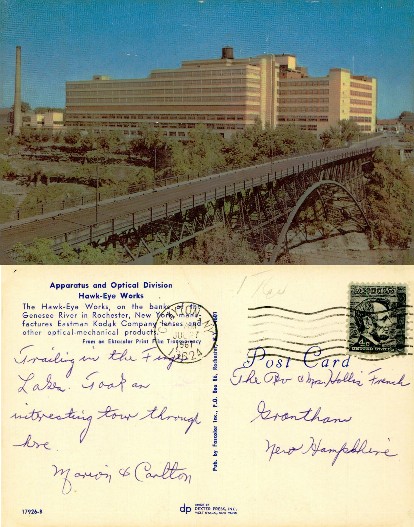 Apparatus and Optical Division
Hawk-Eye Works
The Hawk-Eye Works, on the banks of the
Genesee River in Rochester, New York, manu-
factures Eastman Kodak Company lenses and
other optical-mechanical products.
From an Ektacolor Print Film Transparency
Trailing in the Finger
Lakes. Took an
interesting tour through
here.
Marion & Carlton
17926-B
Pub. by Foxcolor Inc., P.O. Box
dp
DEXTER PRESS, INC.
WEST NYACK, NEW YORK
Post Card
The Rev & Mrs. Hollis French
Grantham
New Hampshire